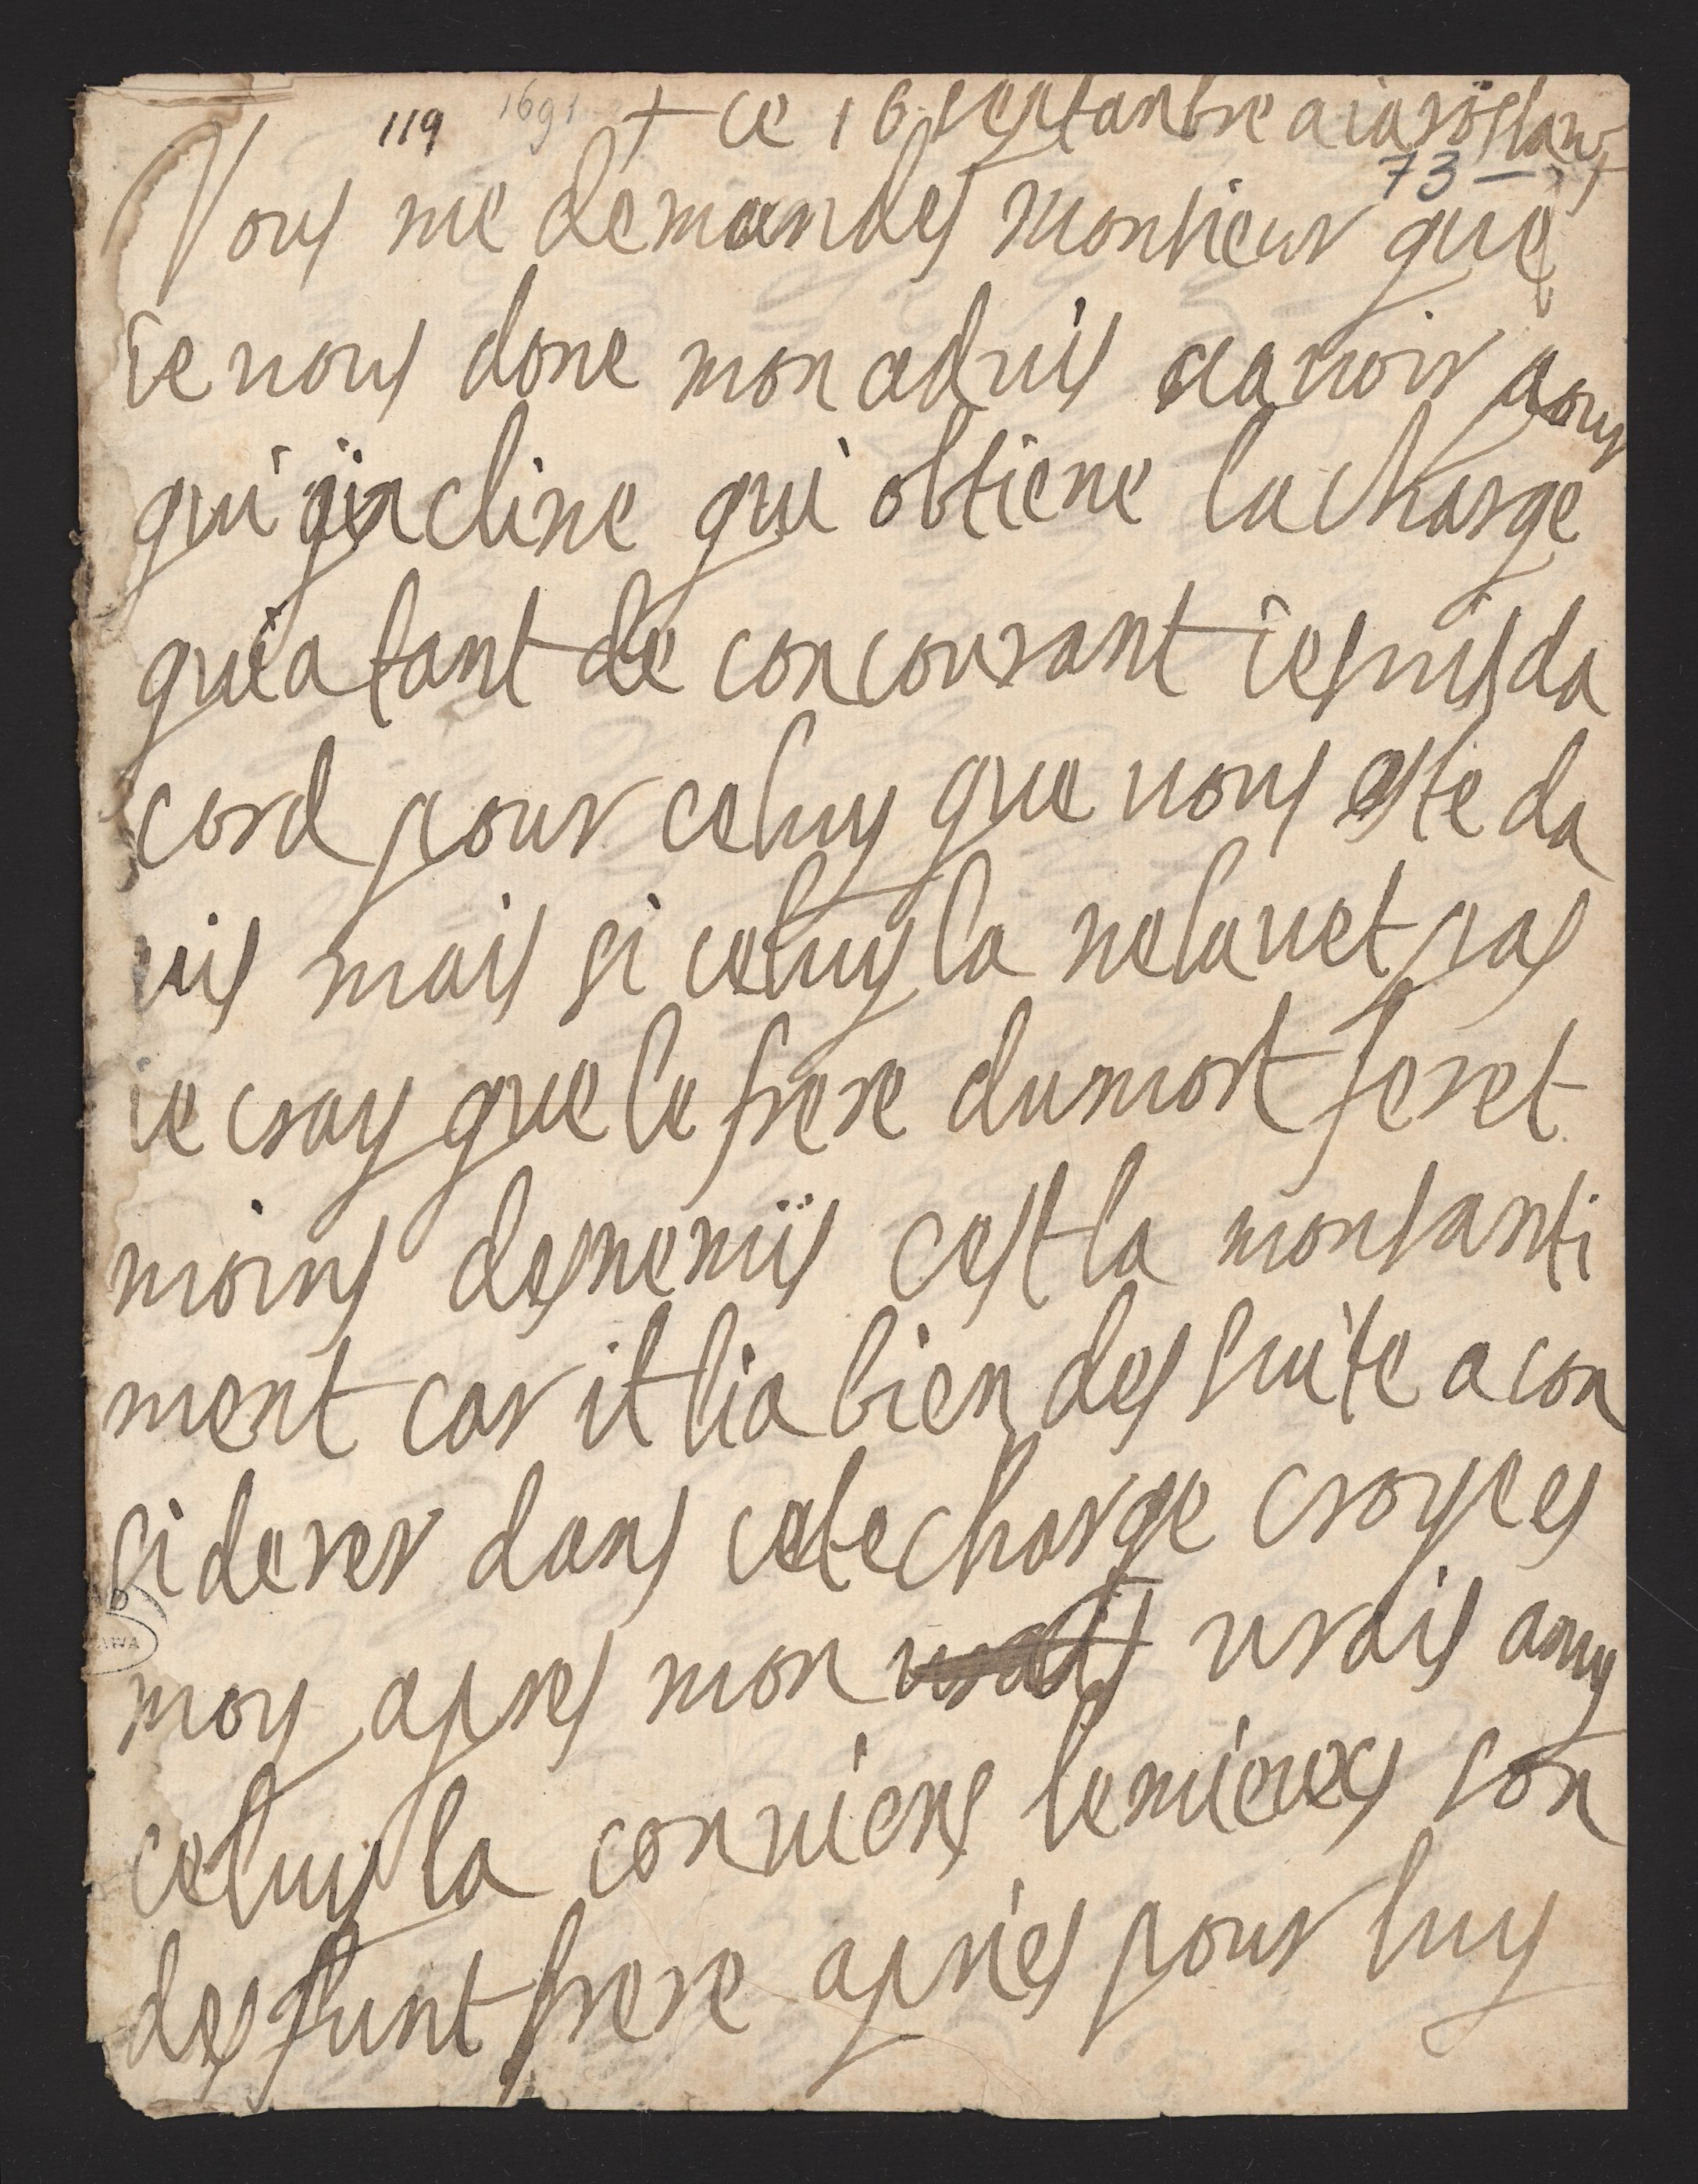 119 1691 + ce 16 septanbre a iaroslaw
73 —
Vous me demandes monsieur que
ie vous done mon advis scavoir a ous
qui gincline qui obtiene la charge
qui a tant de concourant ie suis da
cord pour celuy que vous este da
vis mais si celuy la ne lavet pas
ie cray que le frere du mort feret
moins desnemiis cest la mon santi
ment car il lia bien des suite a con
siderer dans cete charge croyees
moy apres mon vrais amy
celuy la conviens le mieuxs son
desfunt frere apries pour luy